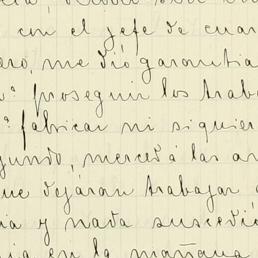 con el jefe de cuar
ero, me dió garantia
proseguir los traba
fabricar ni siquier
gundo, merced á las ar
que dejáran trabajar
ia y nada sucedió
ia en la mañana